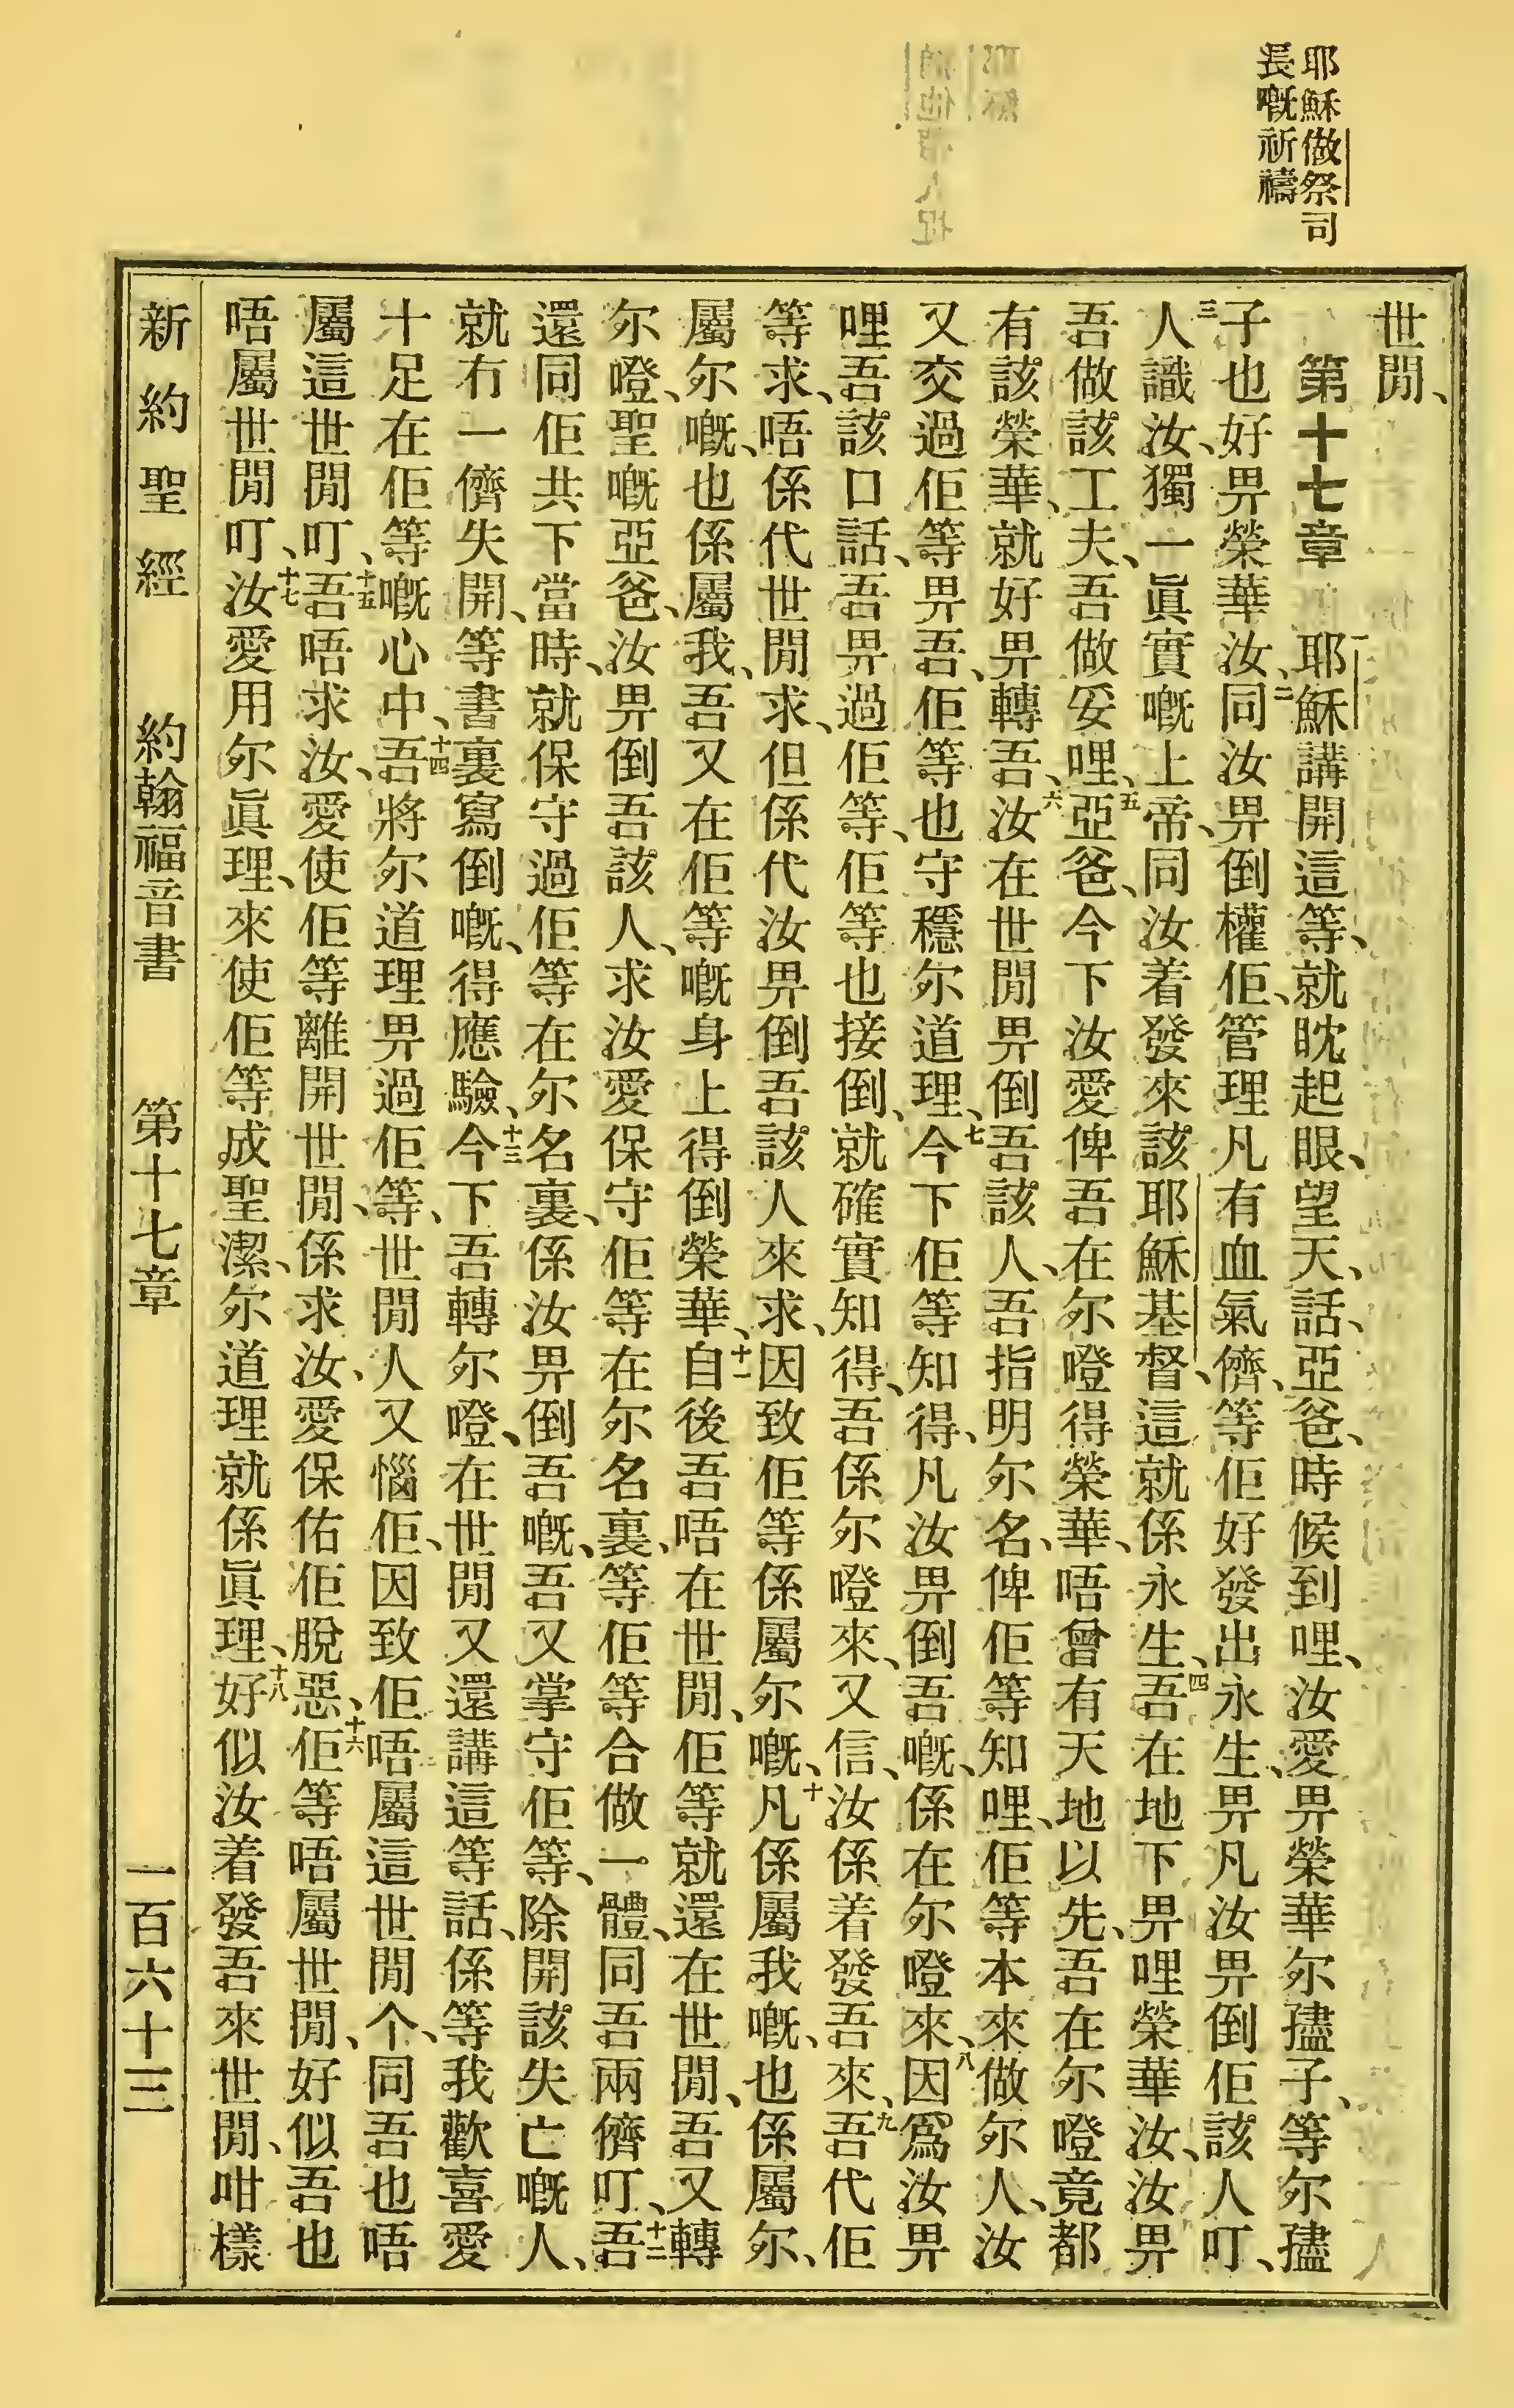 耶穌做祭司
長嘅祈禱
世閒、
第十七章　耶穌講開這等、就眈起眼、望天、話、亞爸、時候到哩、汝愛畀榮華尔孻子、等尔孻
子也好畀榮華汝、二同汝畀倒權佢、管理凡有血氣儕、等佢好發出永生、畀凡汝畀倒佢該人叮、
三人識汝、獨一眞實嘅上帝、同汝着發來該耶穌基督、這就係永生、四吾在地下畀哩榮華汝、汝畀
吾做該工夫、吾做妥哩、五亞爸、今下汝愛俾吾在尔噔得榮華、唔曾有天地以先、吾在尔噔竟都
有該榮華、就好畀轉吾、六汝在世閒畀倒吾該人、吾指明尔名、俾佢等知哩、佢等本來做尔人、汝
又交過佢等畀吾、佢等也守穩尔道理、七今下佢等知得、凡汝畀倒吾嘅、係在尔噔來、八因爲汝畀
哩吾該口話、吾畀過佢等、佢等也接倒、就確實知得、吾係尔噔來、又信、汝係着發吾來、九吾代佢
等求、唔係代世閒求、但係代汝畀倒吾該人來求、因致佢等係屬尔嘅、十凡係屬我嘅、也係屬尔、
屬尔嘅、也係屬我、吾又在佢等嘅身上得倒榮華、十一自後吾唔在世閒、佢等就還在世閒、吾又轉
尔噔、聖嘅亞爸、汝畀倒吾該人、求汝愛保守佢等在尔名裏、等佢等合做一體、同吾兩儕叮、十二吾
還同佢共下當時、就保守過佢等在尔名裏、係汝畀倒吾嘅、吾又掌守佢等、除開該失亡嘅人、
就冇一儕失開、等書裏寫倒嘅、得應驗、十三今下吾轉尔噔、在世閒又還講這等話、係等我歡喜愛
十足在佢等嘅心中、十四吾將尔道理畀過佢等、世閒人又惱佢、因致佢唔屬這世閒个、同吾也唔
屬這世閒叮、十五吾唔求汝、愛使佢等離開世閒、係求汝、愛保佑佢脫惡、十六佢等唔屬世閒、好似吾也
唔屬世閒叮、十七汝愛用尔眞理、來使佢等成聖潔、尔道理就係眞理、十八好似汝着發吾來世閒、咁樣
新約聖經　約翰福音書　第十七章　一百六十三